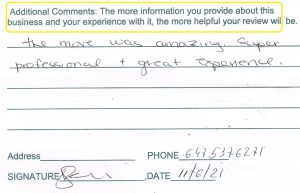 Additional Comments: The more information you provide about this
business and your experience with it, the more helpful your review will be.
the move was amazing. Super
professional + great experience.
Address PHONE 647.537 6271
SIGNATURE DATE 11/6/21